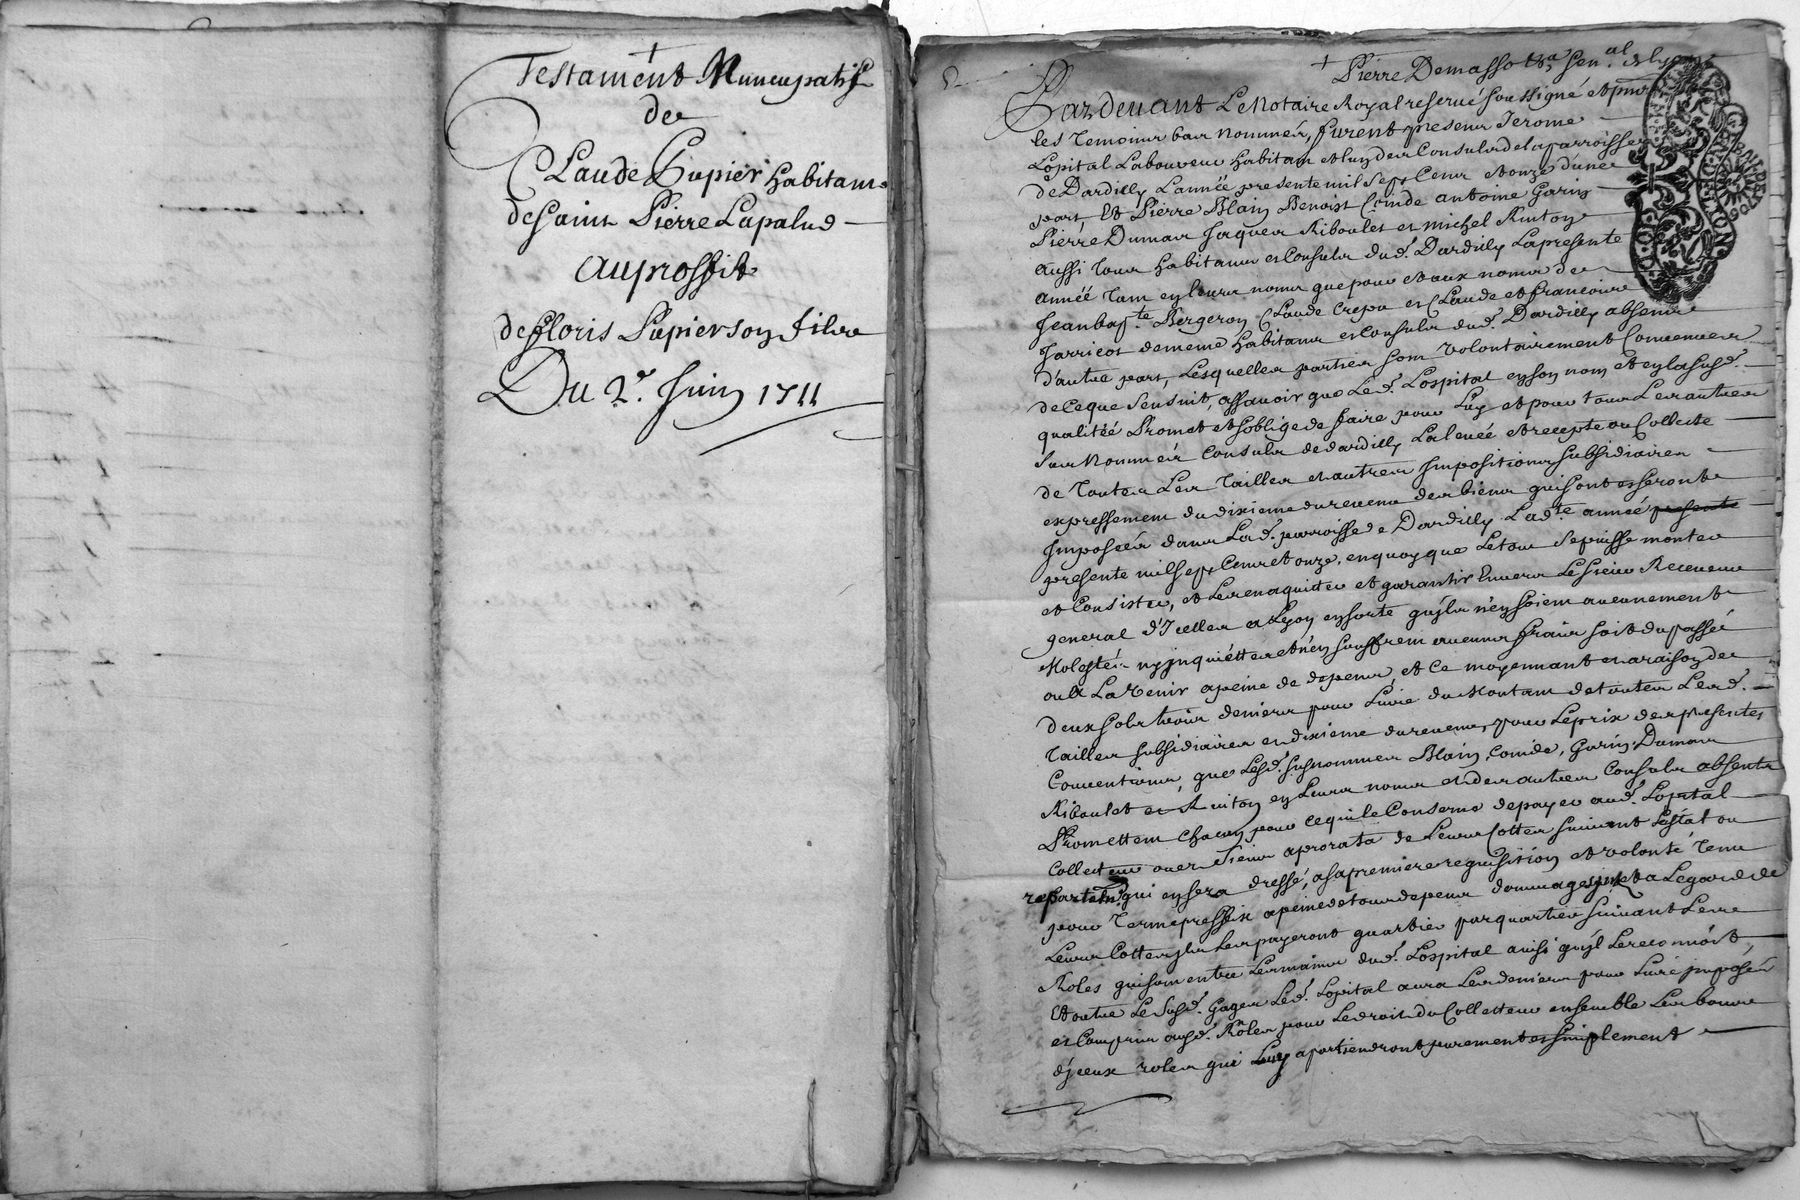 Testament Nuncupatif
de
Claude Pupier habitant
de Saint Pierre Lapalud
au proffit
de Floris Pupier son fils
Du 2e. Juin 1711
Pierre Demasso
Pardevant Le Notaire Royal reservé soussigné et
les temoins bas nommés, furent presens Jerome
Lopital Laboureur habitant et luy des Consuls de la parroisse
de Dardilly L'année presente mil sept cent et onze d'une
part, Et Pierre Blain Benoist Comde antoine Garin
Pierre Dumas Jaques Riboulet et michel Ruiton
aussi tous habitans et Consuls dud. Dardilly La presente
année tant en leurs noms que pour et aux noms de
Jean bapte. Bergeron Claude Crepu et Claude et francoise
Jarricot de meme habitans et Consuls dud. Dardilly absens
d'autre part, Lesquelles parties sont volontairement Convenues
de Ce que s'ensuit, assavoir que Led. Lospital en son nom et en la susd.
qualité Promet et s'oblige de faire pour Luy et pour tous Les autres
sus nommés Consuls de dardilly La levée et recepte ou Collecte
de toutes Les tailles et autres Impositions subsidiaires
expressement du dixieme du revenu des biens qui sont et seront
Imposées dans Lad. parroisse de Dardilly Lade. année presente
presente mil sept Cent et onze, en quoy que Le tout se puisse monter
et Consister, et Les en aquitter et garantir Envers Le sieur Receveur
general d'Icelles a Lyon en sorte qu'ils n'en soient aucunement
Molestés ny inquiettes et n'en souffrent aucuns frais soit du passé
ou a La Venir a peine de depens, et Ce moyennant et a raison de
deux sols trois deniers pour Livre du Montant de toutes Lesd.
tailles subsidiaires et dixieme du revenu, pour Le prix des presentes
Conventions, que Lesd. susnommes Blain, Comde, Garin, Dumas
Riboulet et Ruiton en Leurs noms et des autres Consuls absents
Promettent chacun pour Ce qui le Conserne de payer aud. Lopital
Collecteur ou es siens a prorata de Leurs Cottes suivant L'estat ou
qui en sera dressé, a sa premiere requisition et volonté tenu
pour terme preffix a peine de tous depens dommages et a Legard de
Leurs Cottes ils Les payeront quartier par quartier suivant Les
Roles qui sont entre Les mains dud. Lospital ainsi qu'il Le reconnoist,
Et outre Le susd. Gage Led. Lopital aura Les deniers pour Livre imposés
et Compris ausd. Roles pour Le droit du Collecteur ensemble Les bons
d'jceux roles qui Luy apartiendront purement et simplement